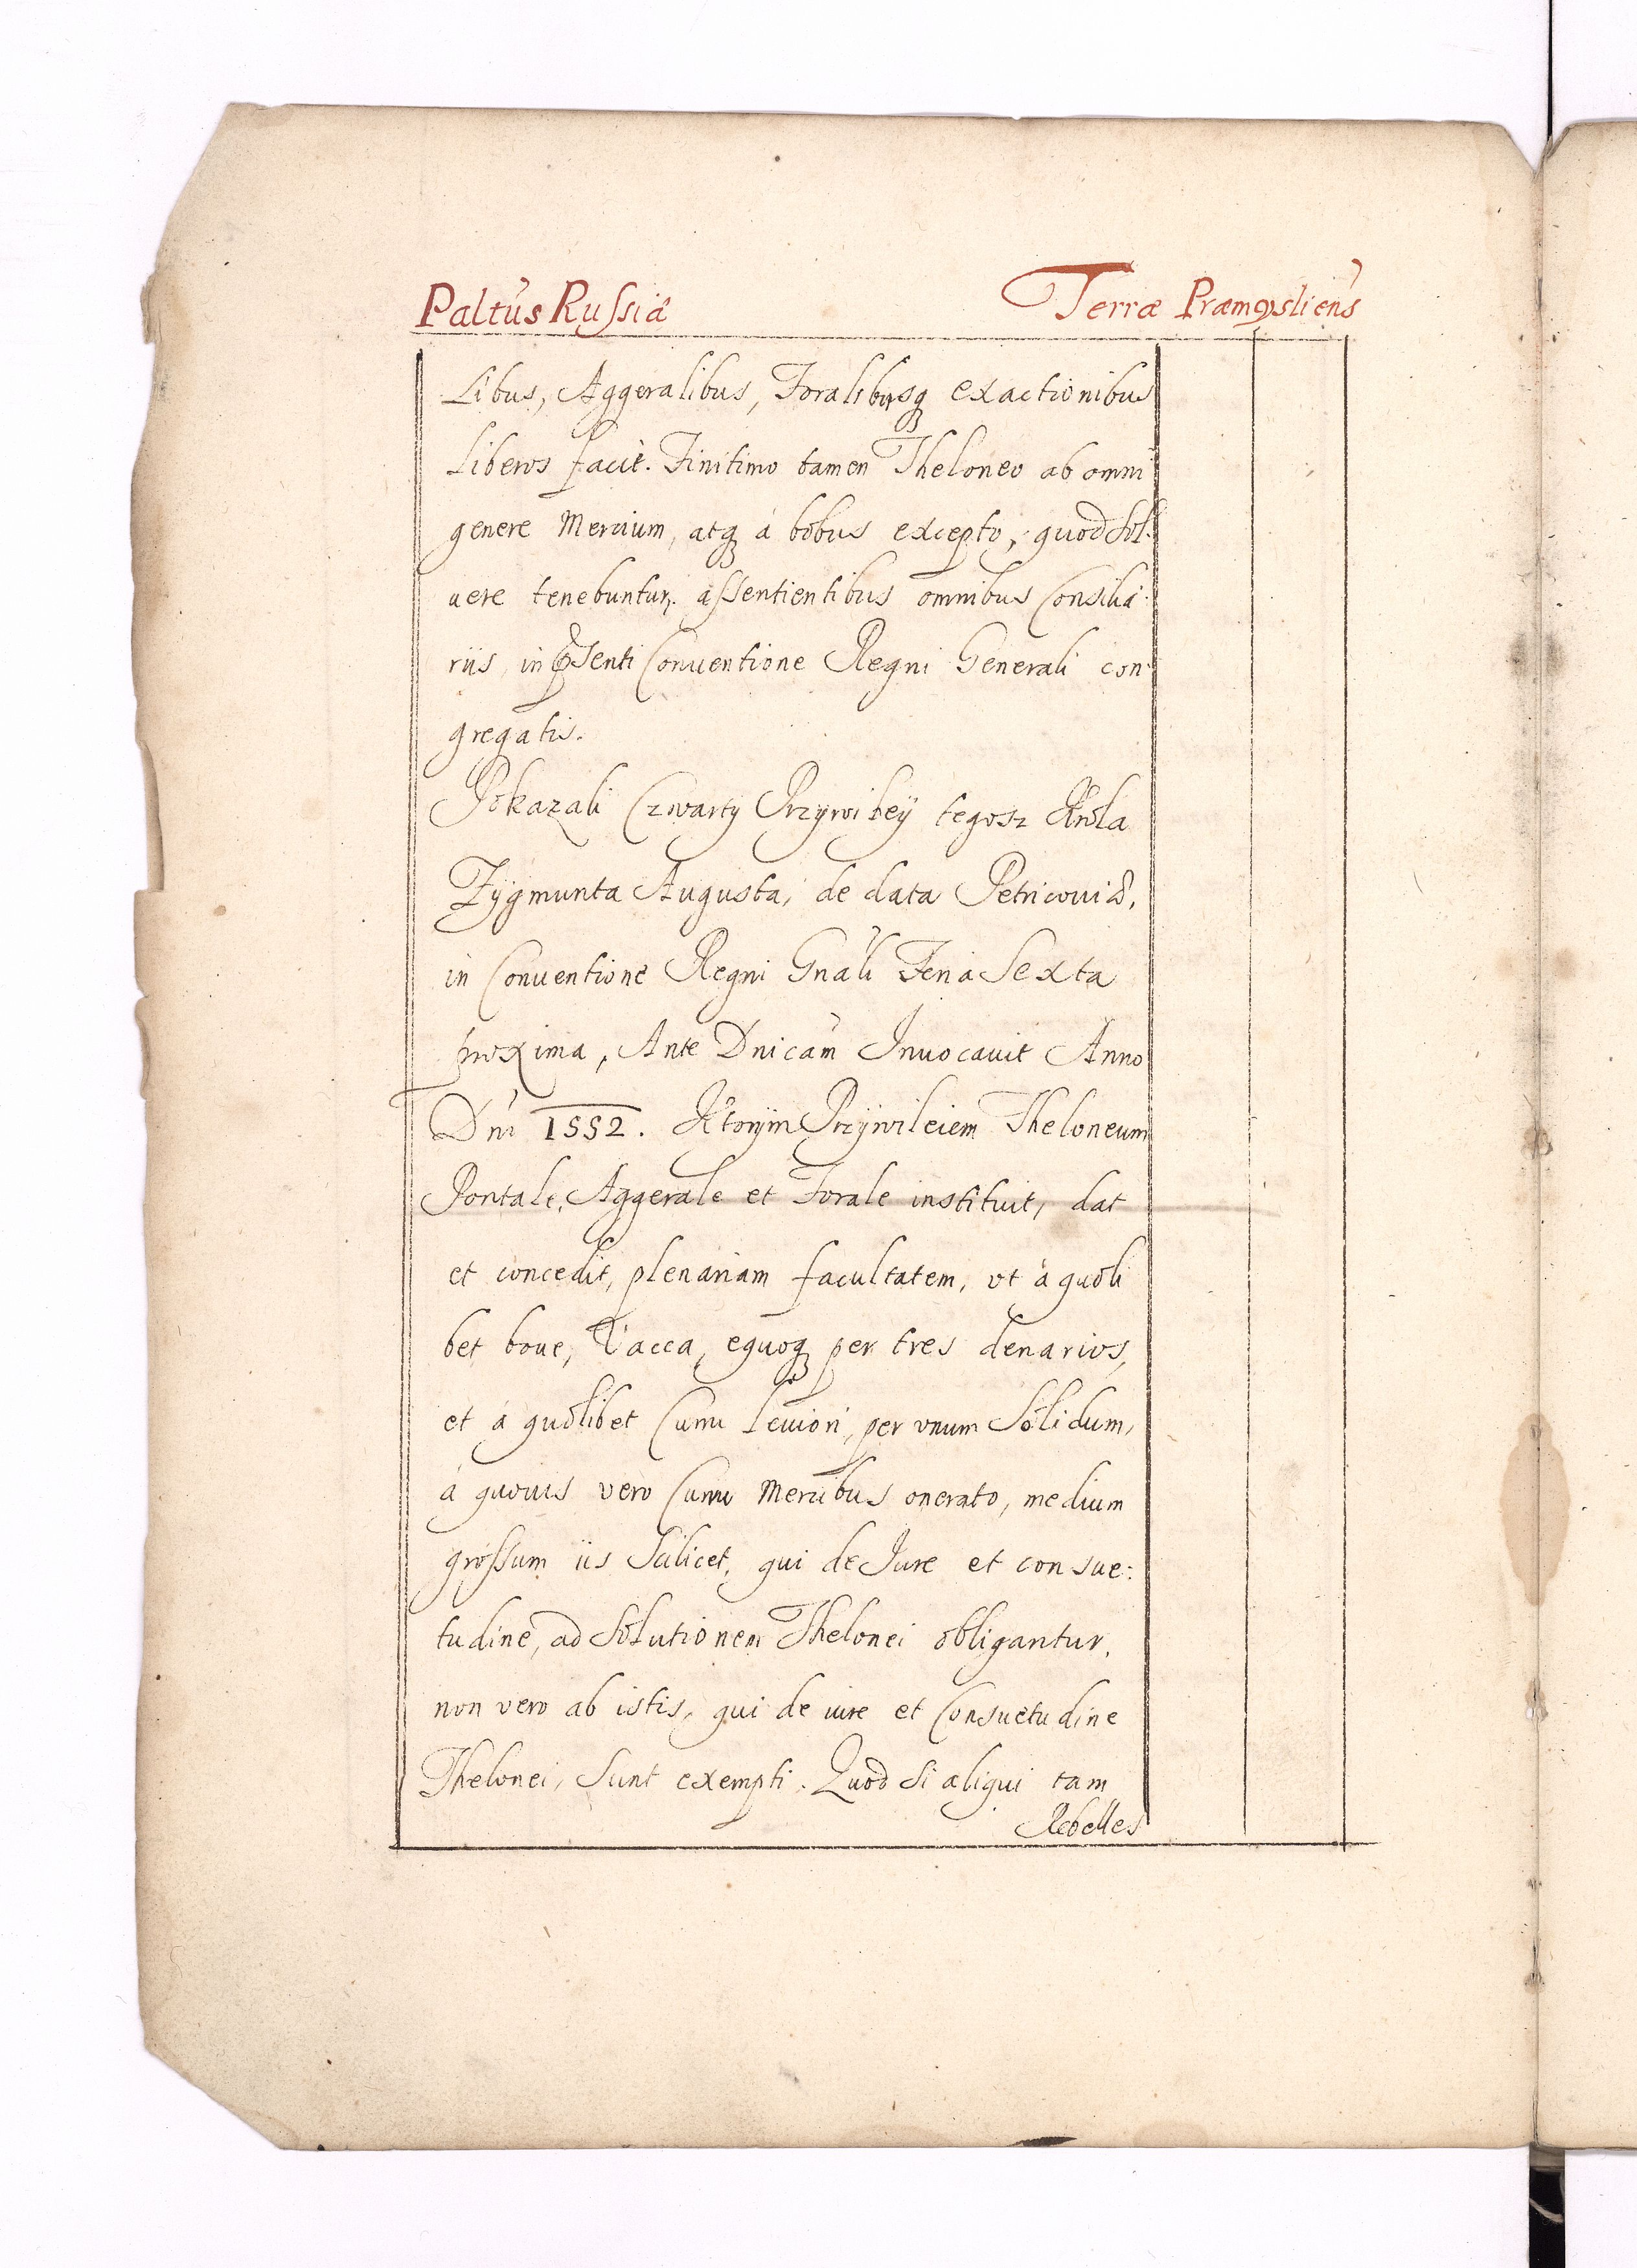 Paltus Russiæ Terræ Præmysliens
Libus, Aggeralibus, Foralibusq exactionibus
Liberos facit. Finitimo tamen Theloneo ab omni
genere Mercium, atq á bobus excepto, quod Sol-
uere tenebuntur. assentientibus omnibus Consilia-
riis, in pnsenti Conuentione Regni Generali con-
gregatis.
Pokazali Czwarty Przywiley tegosz Krola
Zygmunta Augusta, de data Petricouiæ,
in Conuentione Regni Gnali Feria Sexta
proxima, Ante Dnicam Inuocauit Anno
Dni 1552. Ktorym Przywileiem Theloneum
Pontale, Aggerale et Forale instituit, dat
et concedit, plenariam facultatem, vt á quoli
bet boue, Vacca, equoq per tres denarios,
et á quolibet Curru leuiori, per vnum Solidum,
á quouis vero Curru Mercibus onerato, medium
grossum iis Scilicet, qui de Iure et consue:
tudine, ad Solutionem Thelonei obligantur.
non vero ab istis, qui de iure et Consuetudine
Thelonei, Sunt exempti. Quod Si aliqui tam
Rebelles